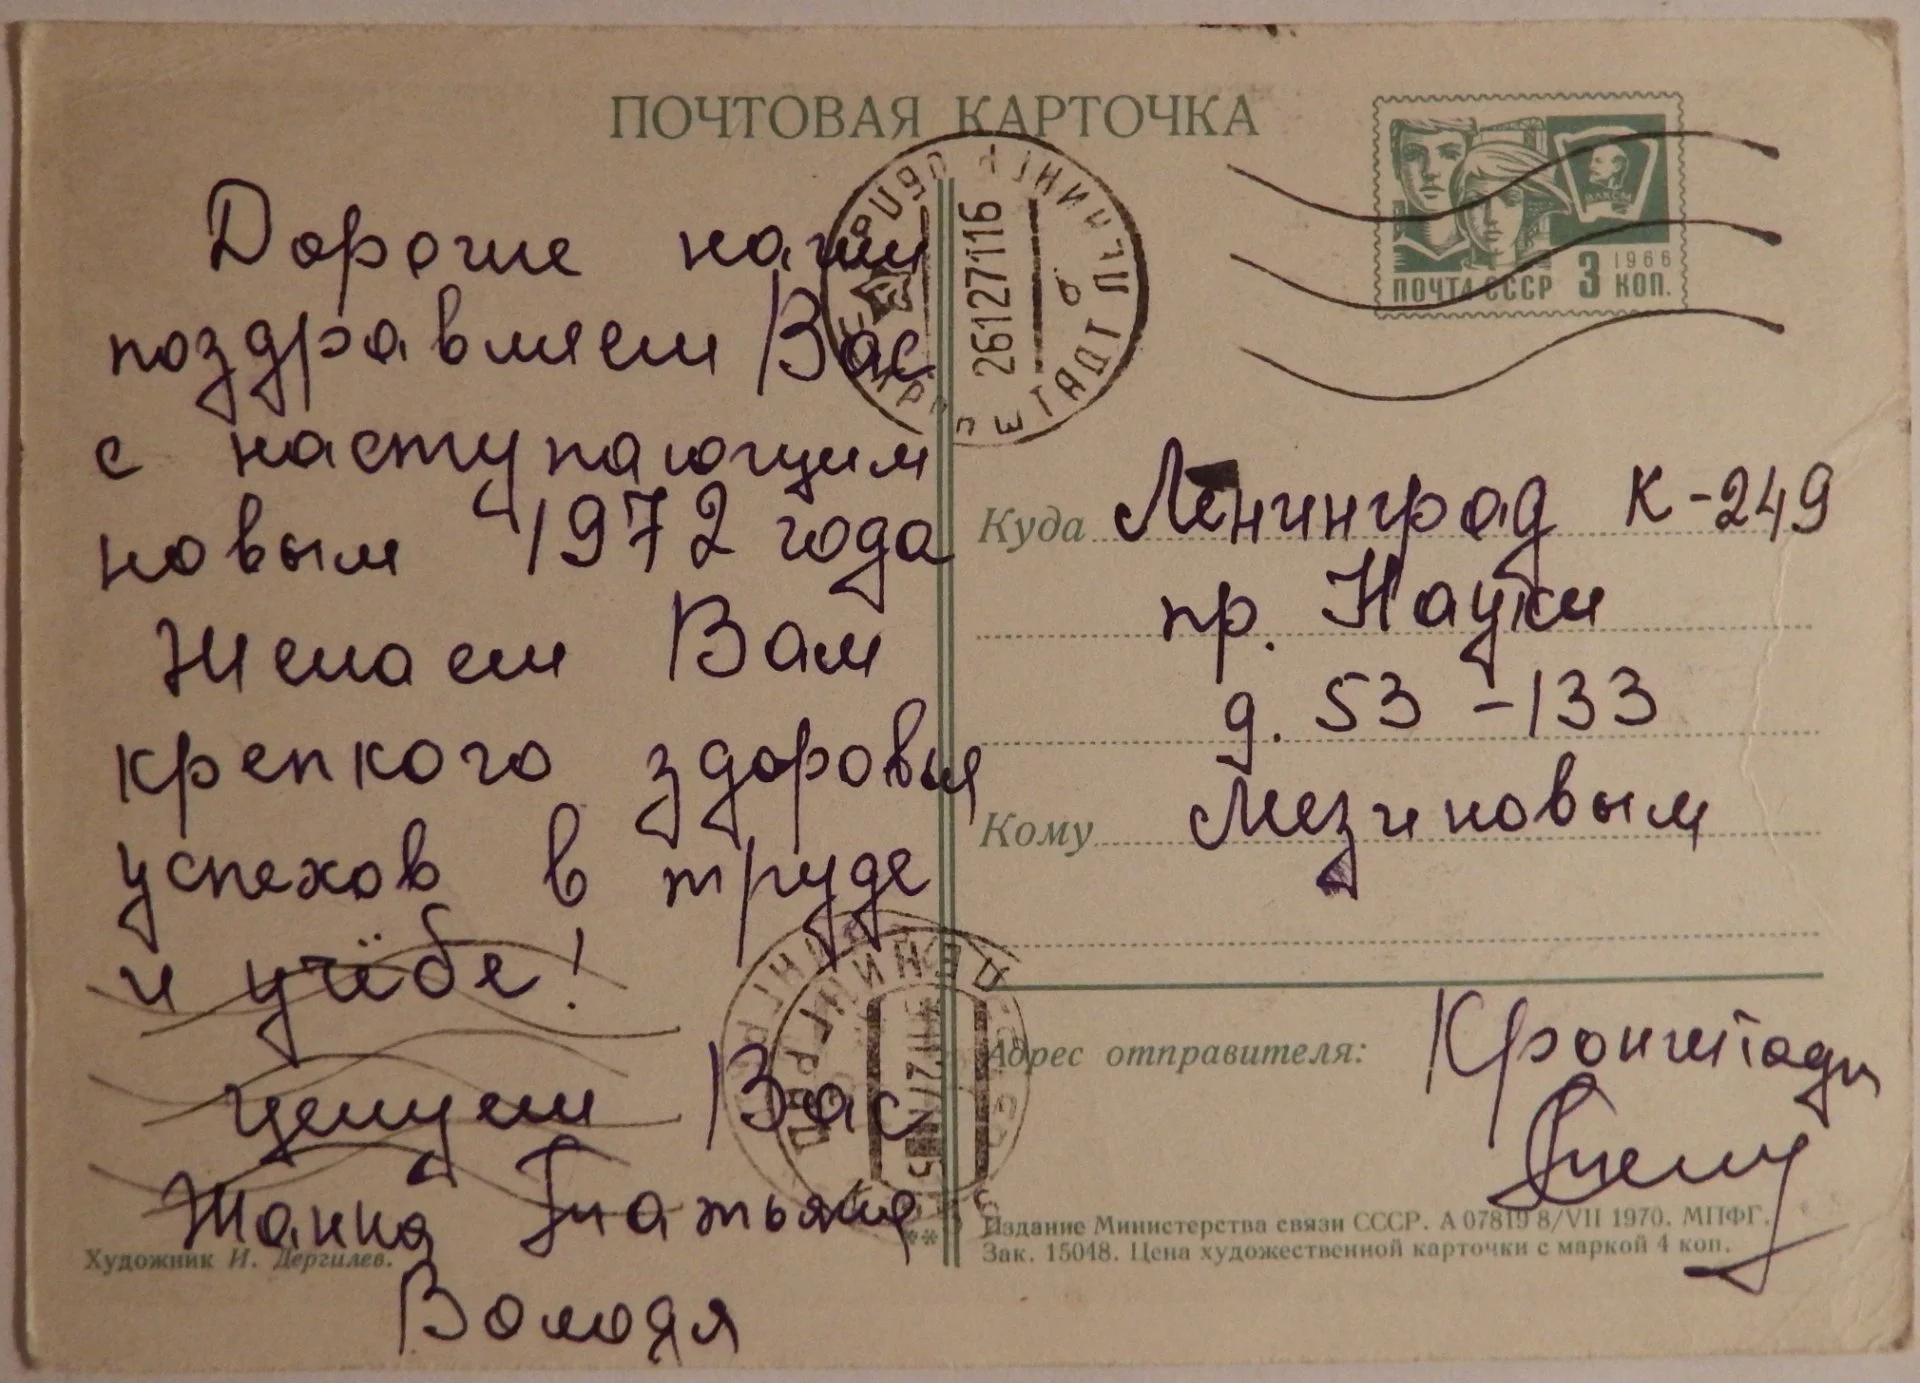 ПОЧТОВАЯ КАРТОЧКА
Дорогие наши
поздравляем Вас
с наступающим
новым 1972 года
Желаем Вам
крепкого здоровья
успехов в труде
и учёбе!
целуем Вас
Жанна Татьяна
Володя
Художник И. Дергилев.
26127116
КРОНШТАДТ ЛЕНИНГР
1966
ПОЧТА СССР 3 КОП.
Куда Ленинград К-249
пр. Науки
д. 53-133
Кому Мезиновым
Адрес отправителя: Кронштадт
Издание Министерства связи СССР. А 07819 8/VII 1970. МПФГ.
Зак. 15048. Цена художественной карточки с маркой 4 коп.